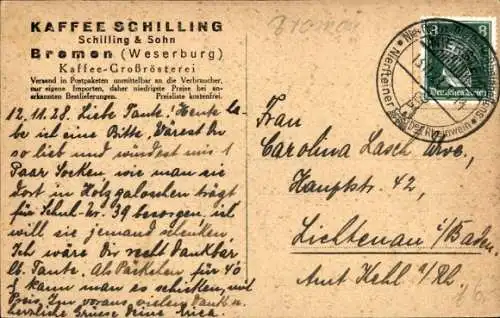 KAFFEE SCHILLING
Schilling & Sohn
Bremen (Weserburg)
Kaffee-Großrösterei
Versand in Postpaketen unmittelbar an die Verbraucher,
nur eigene Importen, daher niedrigste Preise bei an-
erkannten Bestlieferungen. Preisliste kostenfrei.
Bremen
8
Deutsches Reich
Niersteiner
Rheinwein
12.11.28. Liebe Tante! Heute ha-
be ich eine Bitte, Wärest Du
so lieb und würdest mir 1
Paar Socken, wie man sie
dort in Holzgaloschen trägt
für Schuh-Gr. 39 besorgen, ich
will sie jemand schenken.
Ich wäre Dir recht dankbar
lb. Tante. Als Päckchen für 40
₰ kann man es schicken, mit
Preis. Im voraus vielen Dank u.
herzliche Grüsse Deine
Frau
Carolina Lasch Wwe.,
Hauptstr. 42,
Lichtenau i/Baden.
Amt Kehl a/Rh.